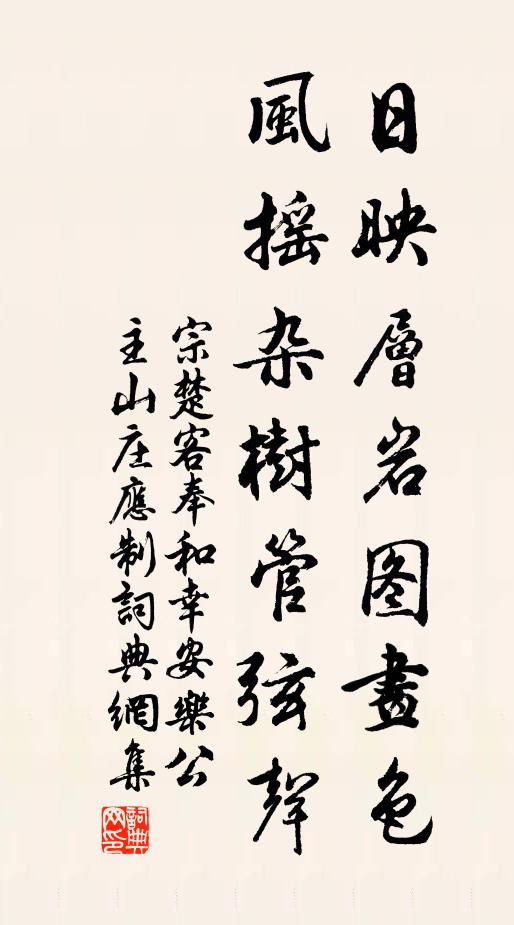 日映層岩图畫色
風摇杂樹管弦聲
宗楚客奉和幸安樂公
主山庄應制詞典網集
詞典网印